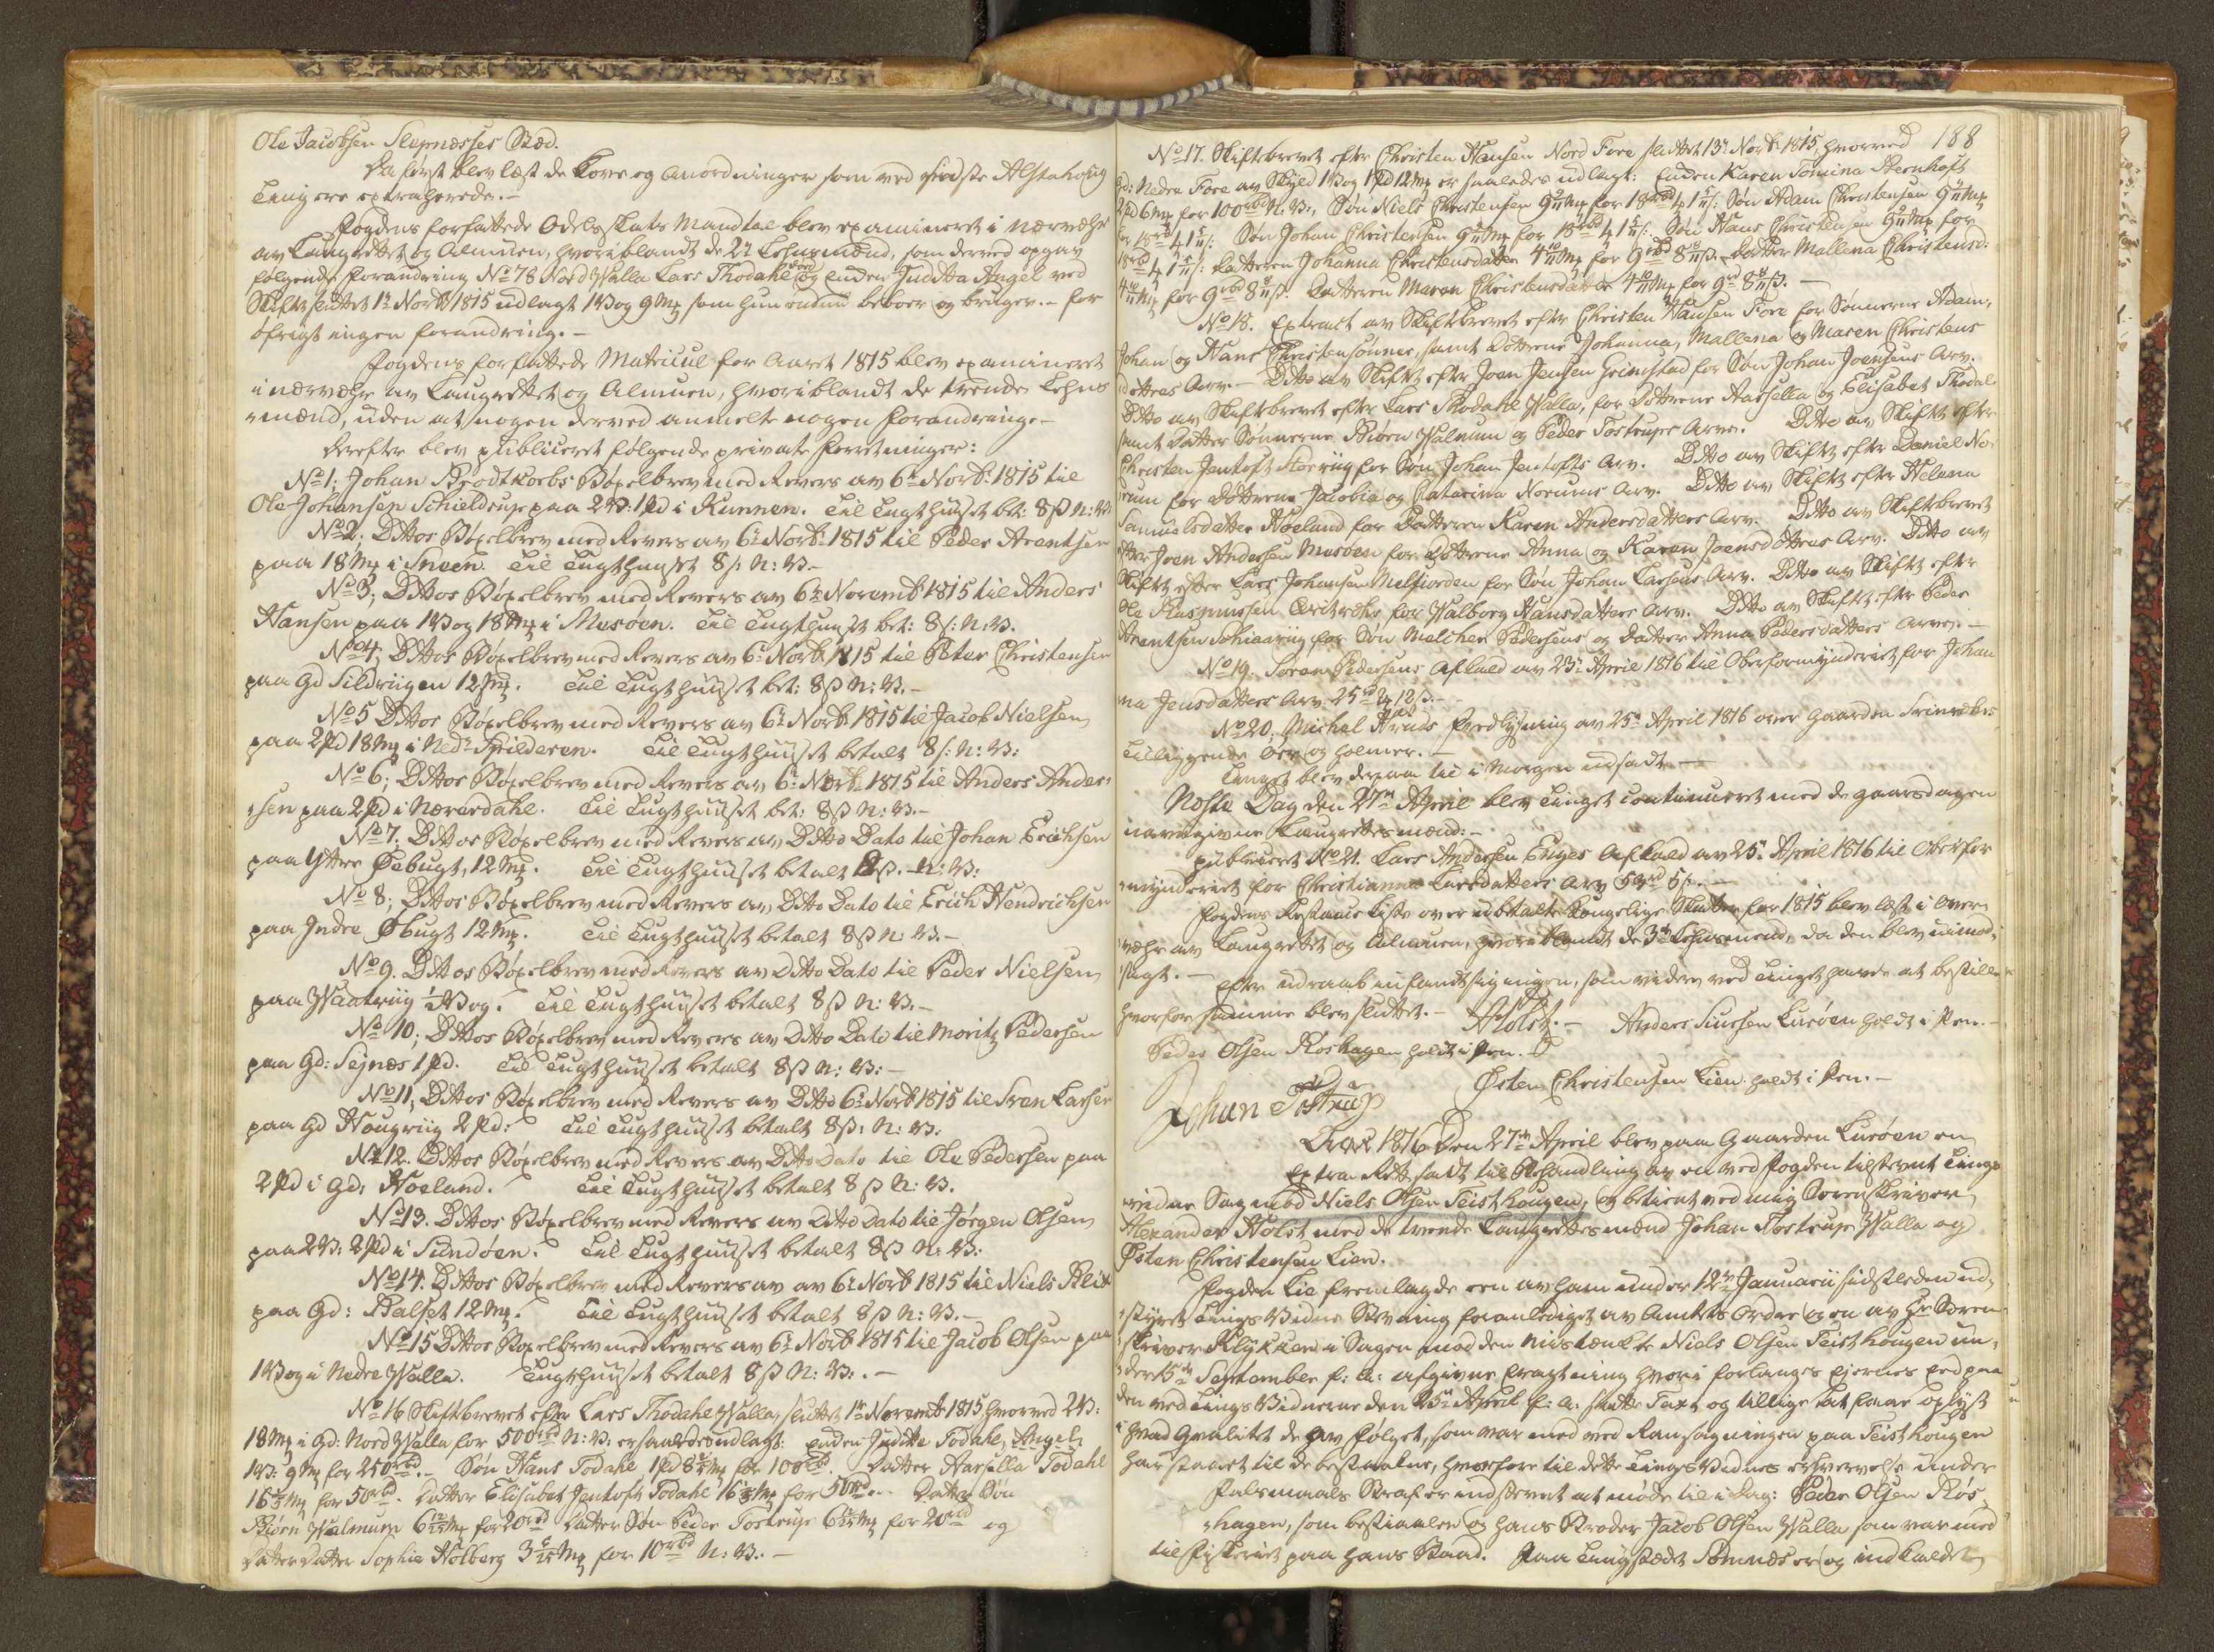 Ole Jacobsen Slepnæsses Stæd.
Da først blev læst de Love og Anordninger som ved sidste Alstahoug
Ting ere extraherede. -
Fogdens forfattede Odelsskats Mandtal blev examineret i nærvæhr
av Laugrettet og Almuen, hvoriblandt de 2de Lehnsmænd, som derved opgav
følgende forandring No 78 Nord Walla Lars Thodahl død og Enken Juditta Angel ved
Skifte sluttet 1te Novbr 1815 udlagt 1 Vog 9 Mk som hun endnu beboer og bruger. - for
øfrigt ingen forandring. -
Fogdens forfattede Matricul for Aaret 1815 blev examineret
i nærvæhr av Laugrettet og Almuen, hvoriblandt de tvende Lehns
mænd, uden at nogen derved anmelte nogen forandringe -
Derefter blev publiceret følgende private forretninger:
No 1; Johan Brodtkorbs Bøxelbrev med Revers av 6te Novbr 1815 til
Ole Johansen Schieldrup paa 2 V: 1 Pd i Kunnen. Til Tugthuuset bet: 8 ß N: V:
No 2; Dittos Bøxelbrev med Revers av 6te Novbr 1815 til Peder Arentsen
paa 18 Mk i Sneen. Til Tugthuuset 8 ß N: V. -
No 3; Dittos Bøxelbrev med Revers av 6te Novemb 1815 til Anders
Hansen paa 1 Vog 18 Mk i Mesøen. Til Tugthuuset bet: 8 ß: N: V.
No 4; Dittos Bøxelbrev med Revers av 6te Novb 1815 til Peter Christensen
paa Gd Sildviigen 12 Mk. Til Tugthuuset bet: 8 ß N: V. -
No 5 Dittos Bøxelbrev med Revers av 6te Novb 1815 til Jacob Nielsen
paa 2 Pd 18 Mk i Nedr Spilderen. Til Tugthuuset betalt 8 ß: N: V:
No 6; Dittos Bøxelbrev med Revers av 6te Novb 1815 til Anders Ander-
sen paa 2 Pd i Nærverdahl. Til Tugthuuset bet: 8 ß N: V. -
No 7. Dittos Bøxelbrev med Revers av Ditto Dato til Johan Erichsen
paa Yttre Øebugt, 12 Mk. Til Tugthuuset betalt 8 ß. N: V:
No 8; Dittos Bøxelbrev med Revers av Ditto Dato til Erich Hendrichsen
paa Indre Øbugt 12 Mk. Til Tugthuuset betalt 8 ß N: V. -
No 9. Dittos Bøxelbrev med Revers av Ditto Dato til Peder Nielsen
paa Waatviig ½ Vog. Til Tugthuuset betalt 8 ß N: V. -
No 10; Dittos Bøxelbrev med Revers av Ditto Dato til Moritz Pedersen
paa Gd: Sejnæs 1 Pd. Til Tugthuuset betalt 8 ß N: V: -
No 11; Dittos Bøxelbrev med Revers av Ditto 6te Novb 1815 til Sven Larsen
paa Gd Hougviig 2 Pd: Til Tugthuuset betalt 8 ß: N: V:
No 12. Dittos Bøxelbrev med Revers av Ditto Dato til Ole Pedersen paa
2 Pd i Gd: Hoeland. Til Tugthuuset betalt 8 ß N: V.
No 13. Dittos Bøxelbrev med Revers av Ditto Dato til Jørgen Olsen
paa 2 V: 2 Pd i Sundøen. Til Tugthuuset betalt 8 ß N: V:
No 14. Dittos Bøxelbrev med Revers av av 6te Novb 1815 til Niels Blix
paa Gd: Kalset 12 Mk. Til Tugthuuset betalt 8 ß N: V. -
No 15 Dittos Bøxelbrev med Revers av 6te Novb 1815 til Jacob Olsen paa
1 Vog i Nedre Walla. Tugthuuset betalt 8 ß N: V:. -
No 16 Skiftebrevet efter Lars Thodahl Walla, sluttet 1te Novemb 1815, hvorved 2 V:
18 Mk i Gd: Nord Walla for 500 rbd N: V: er saaledes udlagt: Enken Juditte Todahl, Angel,
1 V: 9 Mk for 250 rbd. - Søn Hans Todahl 1 Pd Mk for 100 rbd. Datter Harsilla Todahl
16 Mk for 50 rbd. Datter Elisabet Jentoft Todahl 16 Mk for 50 rbd. - Datter Søn
Biørn Walnum 6 Mk for 20 rbd Datter Søn Peder Tostrup 6 Mk for 20 rbd og
Datter Datter Sophie Holberg 3 Mk for 10 rbd N: V:. -
188
No 17. Skiftebrevet efter Christen Hansen Nord Fore sluttet 13de Novbr 1815, hvorved
Gd: Nedre Fore av Skyld 1 Vog 1 Pd 12 Mk er saaledes udlagt: Enken Karen Tomina Bernhoft
2 Pd 6 Mk for 100 rbd N: V:, Søn Niels Christensen 9 Mk for 18 rbd 4 1 ß: Søn Adam Christensen 9 Mk
for 18 rbd 4 1 ß: Søn Johan Christensen 9 Mk for 18 rbd 4 1 ß: Søn Hans Christensen 9 Mk for
18 rbd 4 1 ß: Datteren Johanna Christensdatter 4 Mk for 9 rbd 8 ß. Datter Mallena Christensd:
4 Mk for 9 rbd 8 ß. Datteren Maren Christensdatter 4 Mk for 9 rd 8 ß. -
No 18. Extract av Skiftebrevet efter Christen Hansen Fore for Sønnerne Adam,
Johan og Hans Christensønner, samt Døttrene Johanna, Mallena og Maren Christens
døttres Arv. - Ditto av Skifte efter Joen Jensen Grimstad for Søn Johan Joensens Arv.
Ditto av Skiftebrevet efter Lars Thodahl Walla, for Døttrene Harsella og Elisabet Thodal
samt Datter Sønnerne Biørn Walnum og Peder Tostrups Arv. Ditto av Skifte efter
Christen Jentoft Storviig for Søn Johan Jentofts Arv. Ditto av Skifte efter Daniel No-
rum for Døttrene Jacobia og Catarina Norums Arv. Ditto av Skifte efter Helena
Samuelsdatter Hoeland for Datteren Karen Andersdatters Arv. Ditto av Skiftebrevet
efter Joen Andersen Mesøen for Døttrene Anna og Karen Joensdøttres Arv. Ditto av
Skifte efter Lars Johansen Melfiorden for Søn Johan Larsens Arv. Ditto av Skifte efter
Ole Rasmussen for Walborg Hansdatters Arv. Ditto av Skifte efter Peder
Arentsen Schiaarviig for Søn Melcher Pedersens og Datter Anna Pedersdatters Arv. -
No 19. Søren Pedersens Afkald av 23de April 1816 til Oberformynderiet for Johan
na Jensdatters Arv 25 rd 4 12 ß. -
No 20. Michel Fredlysning av 25de April 1816 over Gaarden
tilliggende Øer og Holmer. -
Tinget blev derpaa til i Morgen udsadt. -
Næste Dag den 27de April blev Tinget continueret med de gaarsdagen
navngivne Laugrettesmænd: -
publiceret No 21. Lars Andersen Enges Afkald av 25de April 1816 til Oberfor
mynderiet for Christianna Larsdatters Arv 53 rd 5 ß. -
Fogdens Restance Liste over ubetalte Kongelige Skatter for 1815 blev læst i Over-
væhr av Laugrettet og Almuen, hvoriblandt de 3de Lehnsmænd, da den blev uimod-
sagt. - Efter udraab indfandt sig ingen, som videre ved Tinget havde at bestille
hvorfor samme blev sluttet. - AHolst. - Anders Siursen Lurøen holdt i Pen. -
Peder Olsen Roshagen holdt i Pen.
Johan Tostrup Østen Christensen Lien holdt i Pen. -
Aar 1816 Den 27de April blev paa Gaarden Lurøen en
Extra Ret satt til Behandling av en ved Fogden tilstevnt Tings
vidne Sag mod Niels Olsen Teisthougen, og betient ved mig Sorenskriver
Alexander Holst med de tvende Laugrettesmænd Johan Tostrup Walla og
Østen Christensen Lien.
Fogden Lie fremlagde een av ham under 12te Januarii sidstleden ud-
stædt Tings Vidne Stevning foranlediget av Amtets Ordre og en av Hr Soren-
skriver Klykken i Sagen mod den mistænkte Niels Olsen Teisthougen un-
der 15de September f: A: afgivne Eragtning hvori forlanges Ejernes Eed paa
den ved Tings Vidnerne den 25de April f: A: skatte Taxt og tillige at faae oplyst
i hvad Qvalitet de av følget, som var med ved Ransagningen paa Teisthougen
har staaet til de bestaalne, hvorfore til dette Tings Vidnes erhvervelse under
Falsmaals Straf er indstevnt at møde til i Dag: Peder Olsen Ros-
hagen, som bestiaalen og hans Broder Jacob Olsen Walla, som var med
til fiskeriet paa hans Baad. Paa Tingstædet Sømnæs er og indkaldet